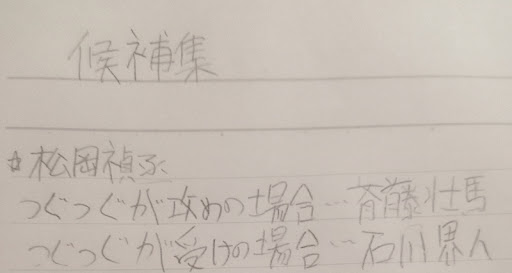 候補集
☆松岡禎丞
つぐつぐが攻めの場合…斉藤壮馬
つぐつぐが受けの場合…石川界人